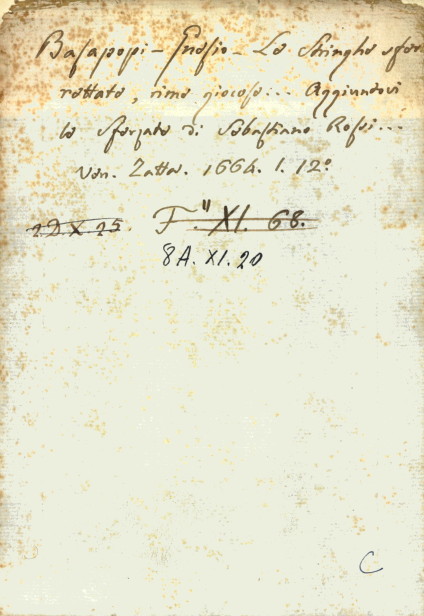 Basapopi - Enosio - Le Stringhe sfer
rettate, rime giocose... Aggiuntovi
le Sferzate di Sebastiano Rossi...
Ven. Zatta. 1664. 1. 12º
2D X 25. F." XI. 68.
8A. XI. 20
C